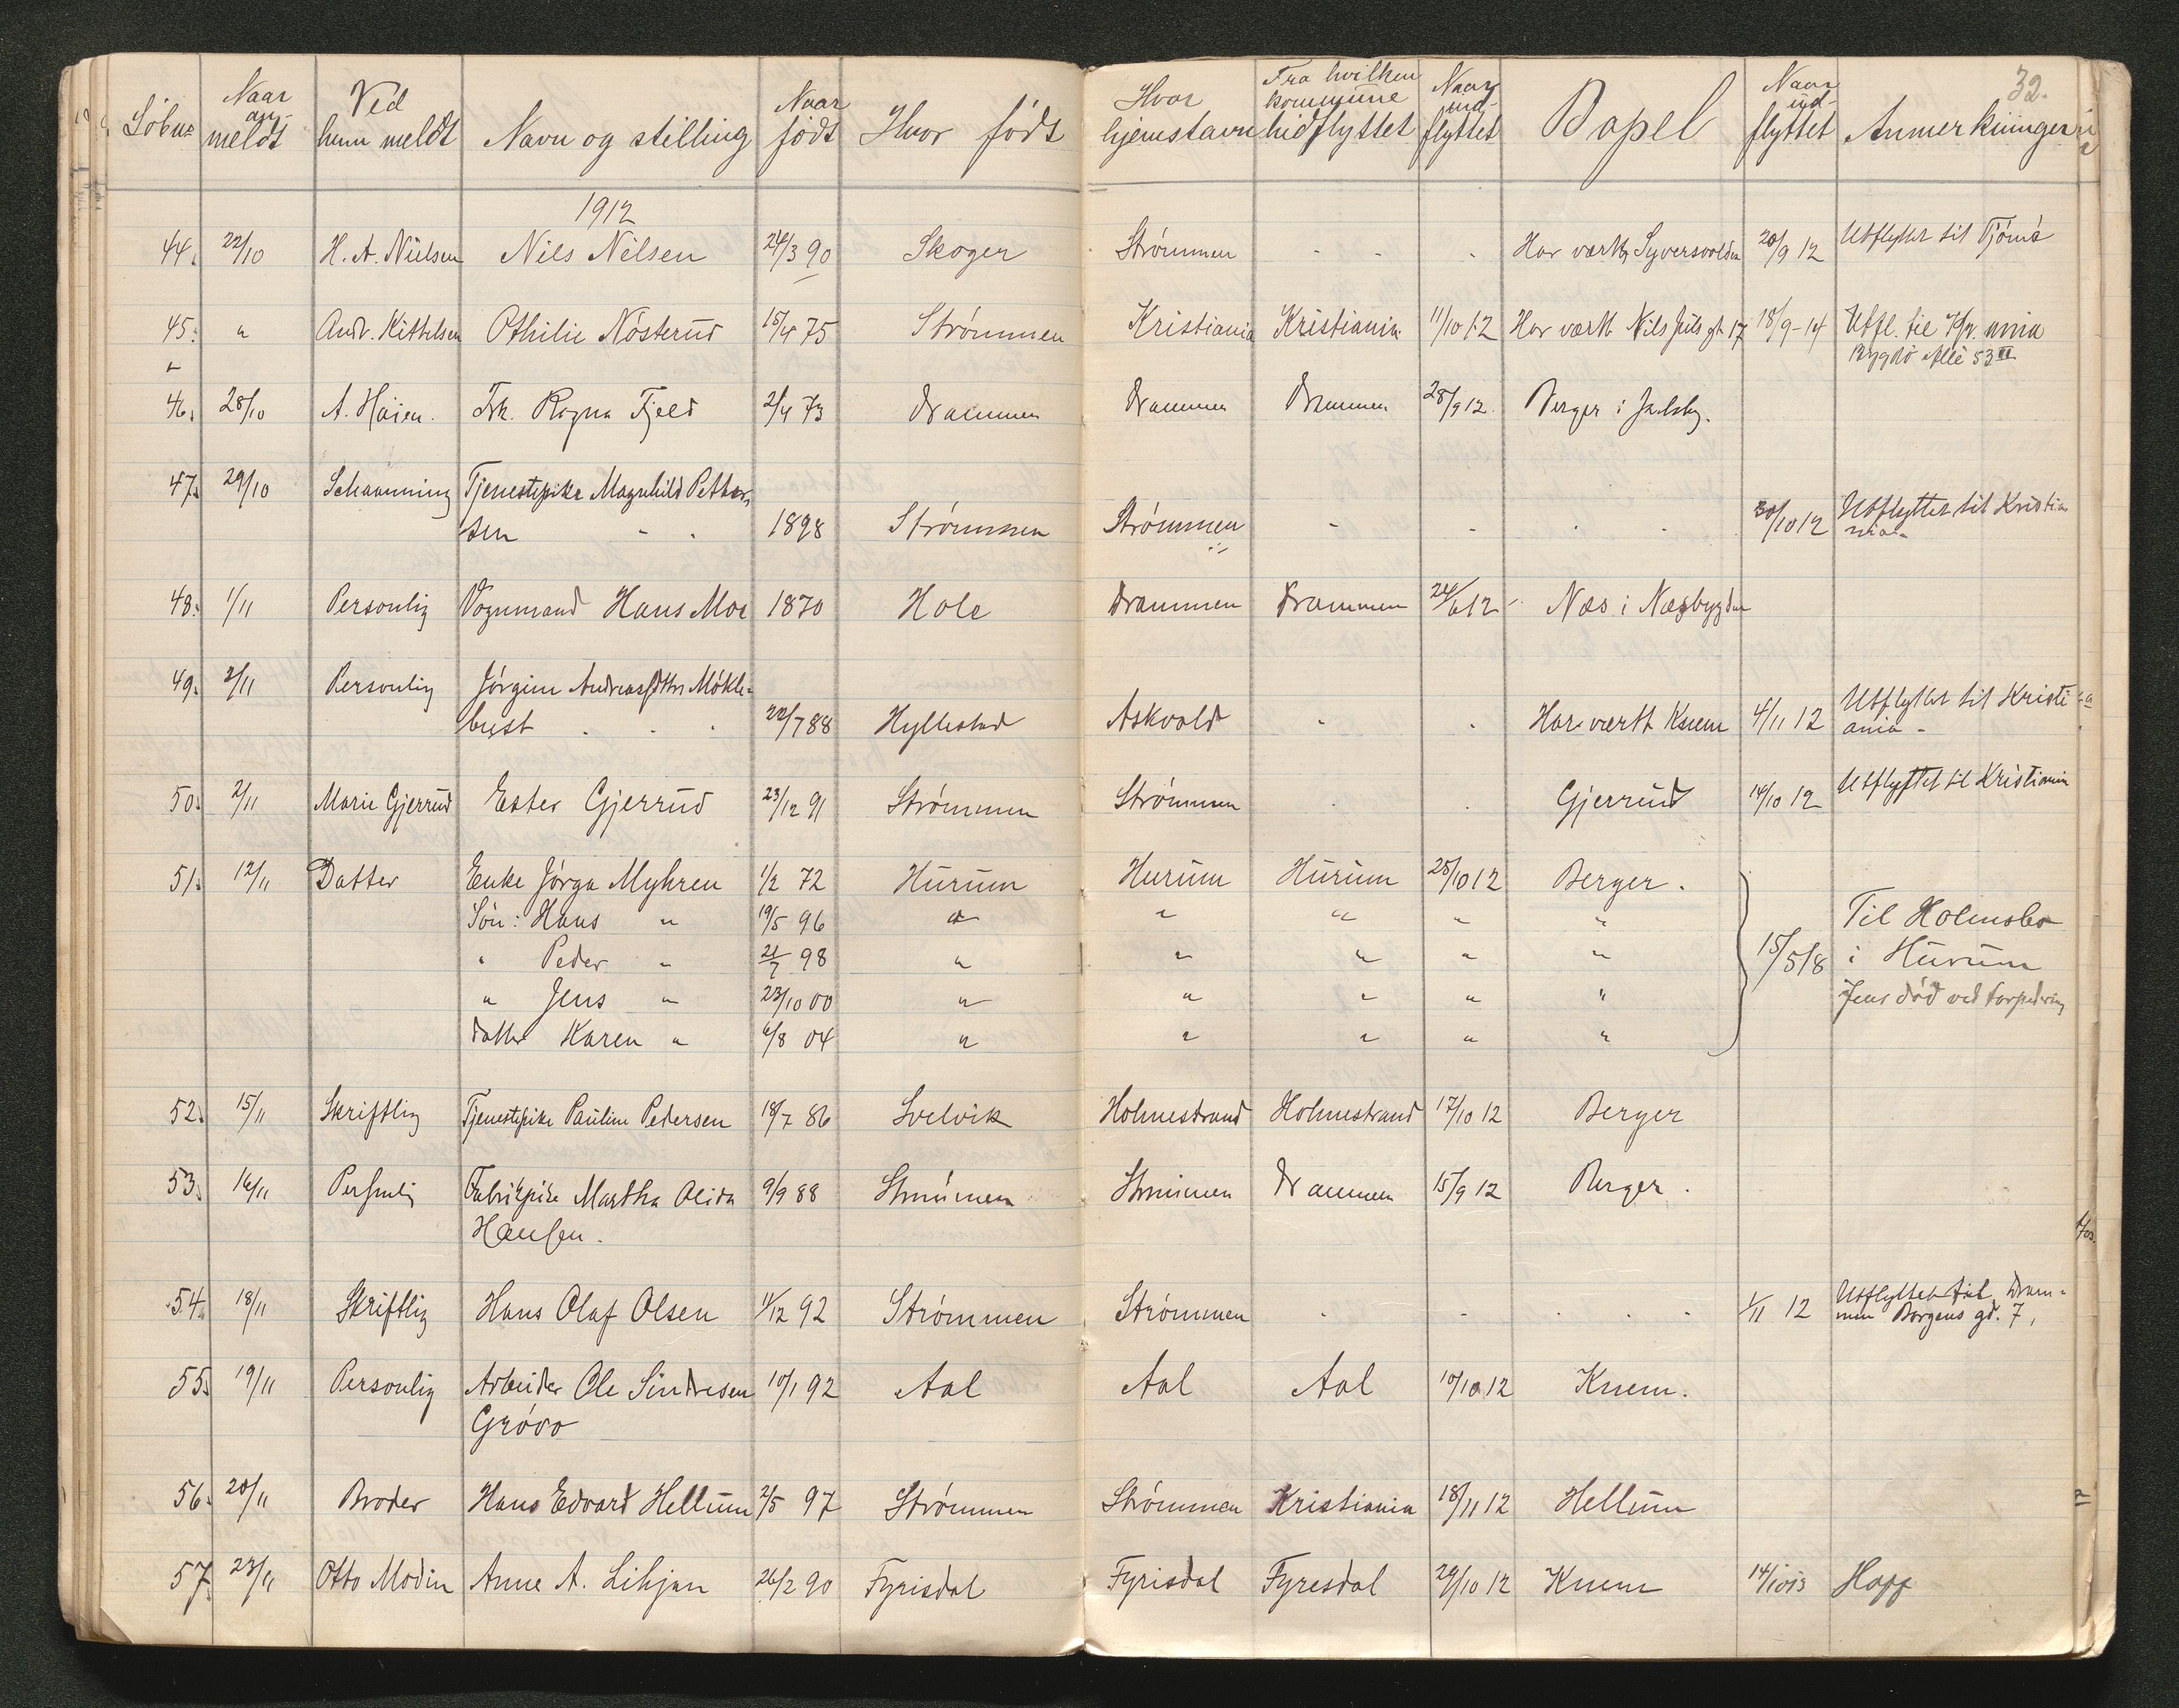 32.
Löbnr Naar anmeldt Ved hvem meldt Navn og stilling Naar födt Hvor födt Hvor hjemstavn Fra hvilken kommune hidflyttet Naar indflyttet Bopel Naar udflyttet Anmerkninger
1912
44. 22/10 H. A. Nielsen Nils Nilsen 24/3 90 Skoger Strömmen - - - Har vært Syversvolden 20/9 12 Utflyttet til Tjömö
45. " Andr. Kittelsen Othilie Nösterud 15/4 75 Strömmen Kristiania Kristiania 11/10 12 Har vært Nils Juls gt 17 18/9-14 Utfl. til
Bygdö Allé 53 II
46. 28/10 A. Höien. Frk. Ragna Fjeld 2/4 73 Drammen Drammen Drammen 28/9 12. Berger i
47. 29/10 Schanning Tjenestepike Magnhild Petter-
sen - - 1898 Strömmen Strömmen - - - - 30/10 12 Utflyttet til Kristia
nia.
48. 1/11 Personlig Vognmand Hans Moe 1870 Hole Drammen Drammen 24/6 12 Næs i Næsbygden
49. 2/11 Personlig Jörgine Andreasdtr Mökle-
bust . . . 22/7 88 Hyllestad Askvold - - Har vært Knem 4/11 12 Utflyttet til Kristi
ania -
50. 2/11 Marie Gjerrud Ester Gjerrud 23/12 91 Strømmen Strömmen . . Gjerrud 14/10 12 Utflyttet til Kristiania
51. 12/11 Datter Enke Jörga Myhren 1/2 72 Hurum Hurum Hurum 25/10 12 Berger.
Sön: Hans " 19/5 96 " " " " " Til Holmsbo
" Peder " 21/7 98 " " " " " 15/5 18 i Hurum
" Jens " 23/10 00 " " " " " Jens död ved torpedering
datter Karen " 6/8 04 " " " " "
52. 15/11 Skriftlig Tjenestepike Pauline Pedersen 18/7 86 Svelvik Holmestrand Holmestrand 17/10 12 Berger
53. 16/11 Personlig Fabrikpike Martha Olida 9/9 88 Strömmen Strömmen Drammen 15/9 12 Berger.
Hansen.
54. 18/11 Skriftlig Hans Olaf Olsen 11/12 92 Strömmen Strömmen - - - - 1/11 12 Utflyttet til Dram-
men Borgens gd. 7,
55. 19/11 Personlig Arbeider Ole Sindresen 10/1 92 Aal Aal Aal 10/10 12 Knem.
Grövo
56. 20/11 Broder Hans Edvard Hellum 2/5 97 Strömmen Strömmen Kristiania 18/11 12 Hellum
57. 23/11 Otto Modin Anne A. Lihjan 26/2 90 Fyrisdal Fyrisdal Fyresdal 29/10 12 Knem 14/10 13 Hoff